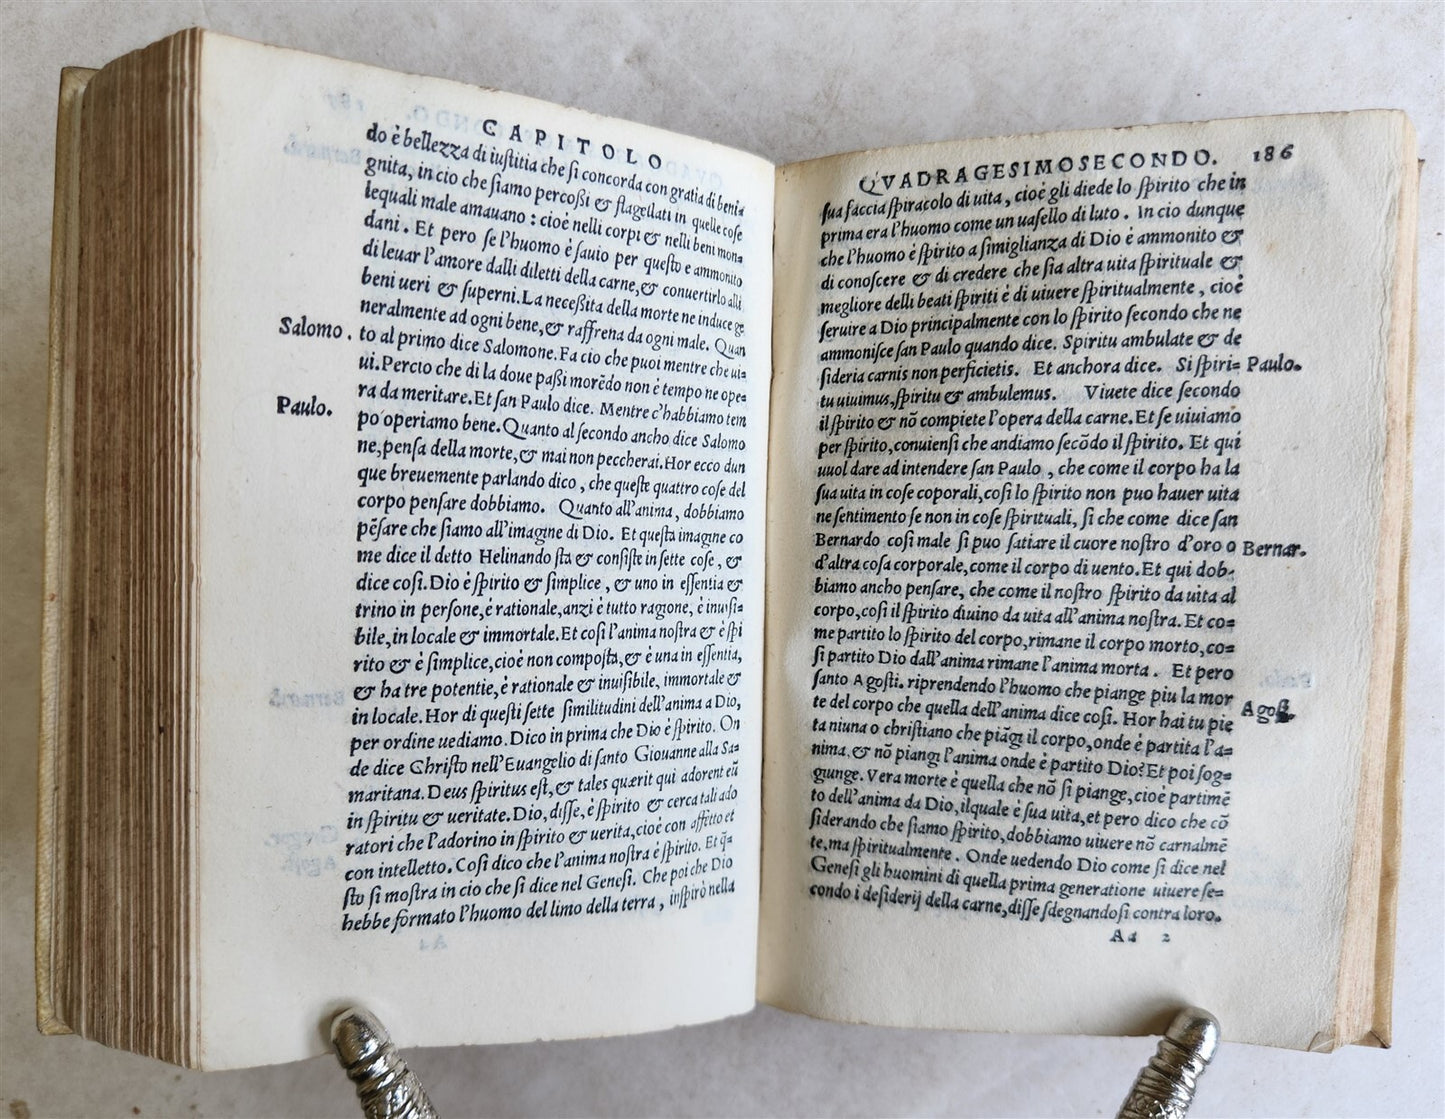 CAPITOLO
do è bellezza di iustitia che si concorda con gratia di beni=
gnita, in cio che siamo percossi & flagellati in quelle cose
lequali male amauano : cioè nelli corpi & nelli beni mon=
dani. Et pero se l'huomo è sauio per questo e ammonito
di leuar l'amore dalli diletti della carne, & conuertirlo alli
beni ueri & superni. La necessita della morte ne induce ge
neralmente ad ogni bene, & raffrena da ogni male. Quan
Salomo. to al primo dice Salomone. Fa cio che puoi mentre che ui=
ui. Percio che di la doue passi morēdo non è tempo ne ope=
ra da meritare. Et san Paulo dice. Mentre c'habbiamo tem
Paulo. po operiamo bene. Quanto al secondo ancho dice Salomo
ne, pensa della morte, & mai non peccherai. Hor ecco dun
que breuemente parlando dico, che queste quattro cose del
corpo pensare dobbiamo. Quanto all'anima, dobbiamo
pēsare che siamo all'imagine di Dio. Et questa imagine co
me dice il detto Helinando sta & consiste in sette cose, &
dice così. Dio è spirito & simplice, & uno in essentia &
trino in persone, è rationale, anzi è tutto ragione, è inuisi=
bile, in locale & immortale. Et così l'anima nostra & è spi
rito & è simplice, cioè non composta, & è una in essentia,
& ha tre potentie, è rationale & inuisibile, immortale &
in locale. Hor di questi sette similitudini dell'anima a Dio,
per ordine uediamo. Dico in prima che Dio è spirito. On
de dice Christo nell'Euangelio di santo Giouanne alla Sa=
maritana. Deus spiritus est, & tales quærit qui adorent eū
in spiritu & ueritate. Dio, disse, è spirito & cerca tali ado
ratori che l'adorino in spirito & uerita, cioè con affetto et
con intelletto. Cosi dico che l'anima nostra è spirito. Et q̄=
sto si mostra in cio che si dice nel Genesi. Che poi che Dio
hebbe formato l'huomo del limo della terra, inspirò nella
QVADRAGESIMOSECONDO. 186
sua faccia spiracolo di uita, cioè gli diede lo spirito che in
prima era l'huomo come un uasello di luto. In cio dunque
che l'huomo è spirito a simiglianza di Dio è ammonito &
di conoscere & di credere che sia altra uita spirituale &
megliore delli beati spiriti è di uiuere spiritualmente, cioè
seruire a Dio principalmente con lo spirito secondo che ne
ammonisce san Paulo quando dice. Spiritu ambulate & de
sideria carnis non perficietis. Et anchora dice. Si spiri= Paulo.
tu uiuimus, spiritu & ambulemus. Viuete dice secondo
il spirito & nō compiete l'opera della carne. Et se uiuiamo
per spirito, conuiensi che andiamo secōdo il spirito. Et qui
uuol dare ad intendere san Paulo, che come il corpo ha la
sua uita in cose coporali, così lo spirito non puo hauer uita
ne sentimento se non in cose spirituali, si che come dice san
Bernardo così male si puo satiare il cuore nostro d'oro o Bernar.
d'altra cosa corporale, come il corpo di uento. Et qui dob=
biamo ancho pensare, che come il nostro spirito da uita al
corpo, così il spirito diuino da uita all'anima nostra. Et co=
me partito lo spirito del corpo, rimane il corpo morto, co=
si partito Dio dall'anima rimane l'anima morta. Et pero
santo Agosti. riprendendo l'huomo che piange piu la mor
te del corpo che quella dell'anima dice così. Hor hai tu pie Agosti.
ta niuna o christiano che piāgi il corpo, onde è partita l'a=
nima, & nō piangi l'anima onde è partito Dio? Et poi sog=
giunge. Vera morte è quella che nō si piange, cioè partimē
to dell'anima da Dio, ilquale è sua uita, et pero dico che cō
siderando che siamo spirito, dobbiamo uiuere nō carnalmē
te, ma spiritualmente. Onde uedendo Dio come si dice nel
Genesi gli huomini di quella prima generatione uiuere se=
condo i desiderij della carne, disse sdegnandosi contra loro.
Aa 2